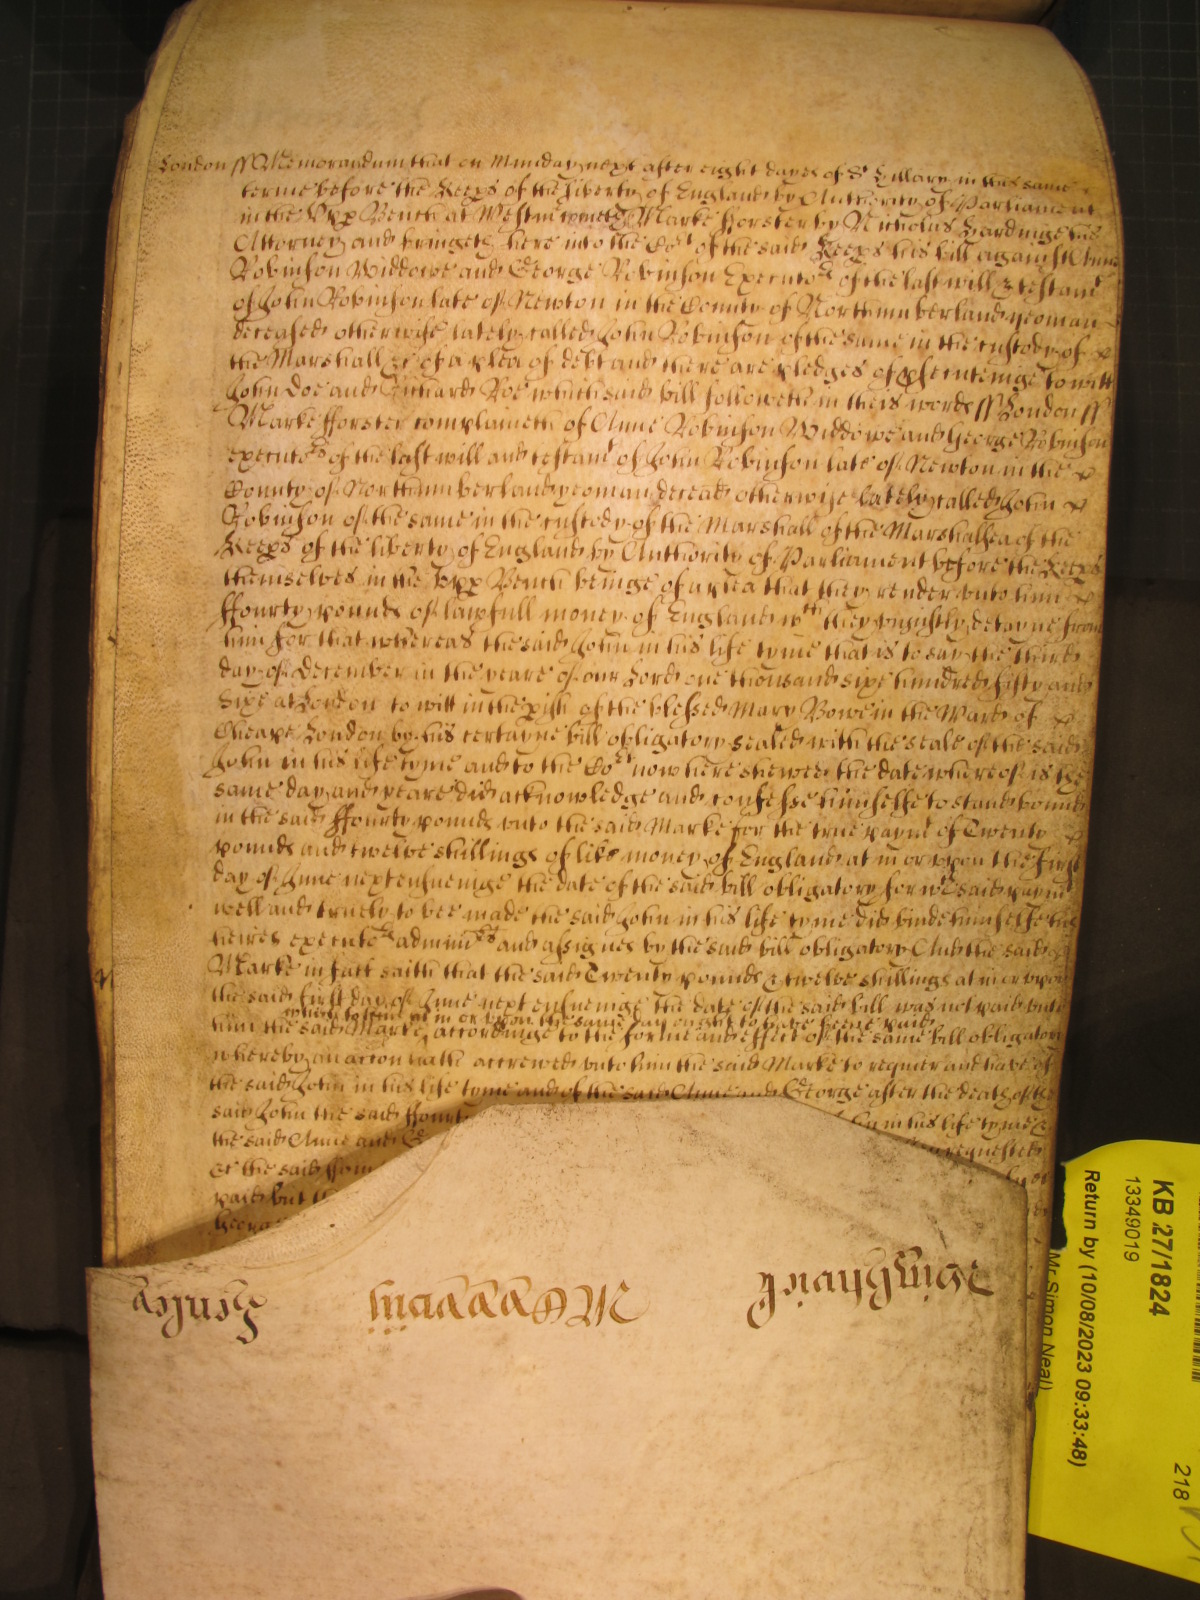 London ss Memorandum that on Munday next after eight dayes of St Hillary in this same
terme before the Keeps of the liberty of England by Authority of Parliament
in the Upp Bench at Westm cometh Marke fforster by Nicholas Hardinge his
Attorney and bringeth here into the Cort of the said Keeps his bill against Anne
Robinson Widdowe and George Robinson Executors of the last will & testamt
of John Robinson late of Newton in the County of Northumberland yeoman
deceased otherwise lately called John Robinson of the same in the custody of
the Marshall &c of a plea of debt and there are pledges of prosecuteinge to witt
John Doe and Richard Roe which said bill followeth in theis words ss London ss
Marke fforster complaineth of Anne Robinson Widdowe and George Robinson
executors of the last will and testamt of John Robinson late of Newton in the
County of Northumberland yeoman deceased otherwise lately called John
Robinson of the same in the custody of the Marshall of the Marshallsea of the
Keeps of the liberty of England by Authority of Parliament before the Keeps
themselves in the Upp Bench beinge of a plea that they render unto him
ffourty pounds of lawfull money of England wch they uniustly detayne from
him for that whereas the said John in his life tyme that is to say the third
day of December in the yeare of our Lord one thousand sixe hundred fifty and
Sixe at London to witt in the pish of the blessed Mary Bowe in the Ward of
Cheape London by his certayne bill obligatory sealed with the seale of the said
John in his life tyme and to the Cort now here shewed the date whereof is the
same day and yeare did acknowledge and confesse himselfe to stand bound
in the said ffourty pounds unto the said Marke for the true paymt of Twenty
pounds and twelve shillings of like money of England at in or upon the first
day of June next ensueinge the date of the said bill obligatory for wch said paymt
well and truely to bee made the said John in his life tyme did binde himselfe his
heires executors administrators and assignes by the said bill obligatory And the said
Marke in fact saith that the said Twenty pounds & twelve shillings at in or upon
the said first day of June next ensueinge the date of the said bill was not paid unto
when to him at in or upon the same day ought to have beene paid
him the said Marke accordinge to the forme and effect of the same bill obligatory
whereby an accon hath accrewed unto him the said Marke to requier and have of
the said John in his life tyme and of the said Anne and George after the death of the
said John the said ffourty
John in his life tyme &
the said Anne and
requested
paid but
George
Henley
MDCxxxviij
Wingfeild
KB 27/1824
13349019
Return by (10/08/2023 09:33:48)
Mr Simon Neal)
218